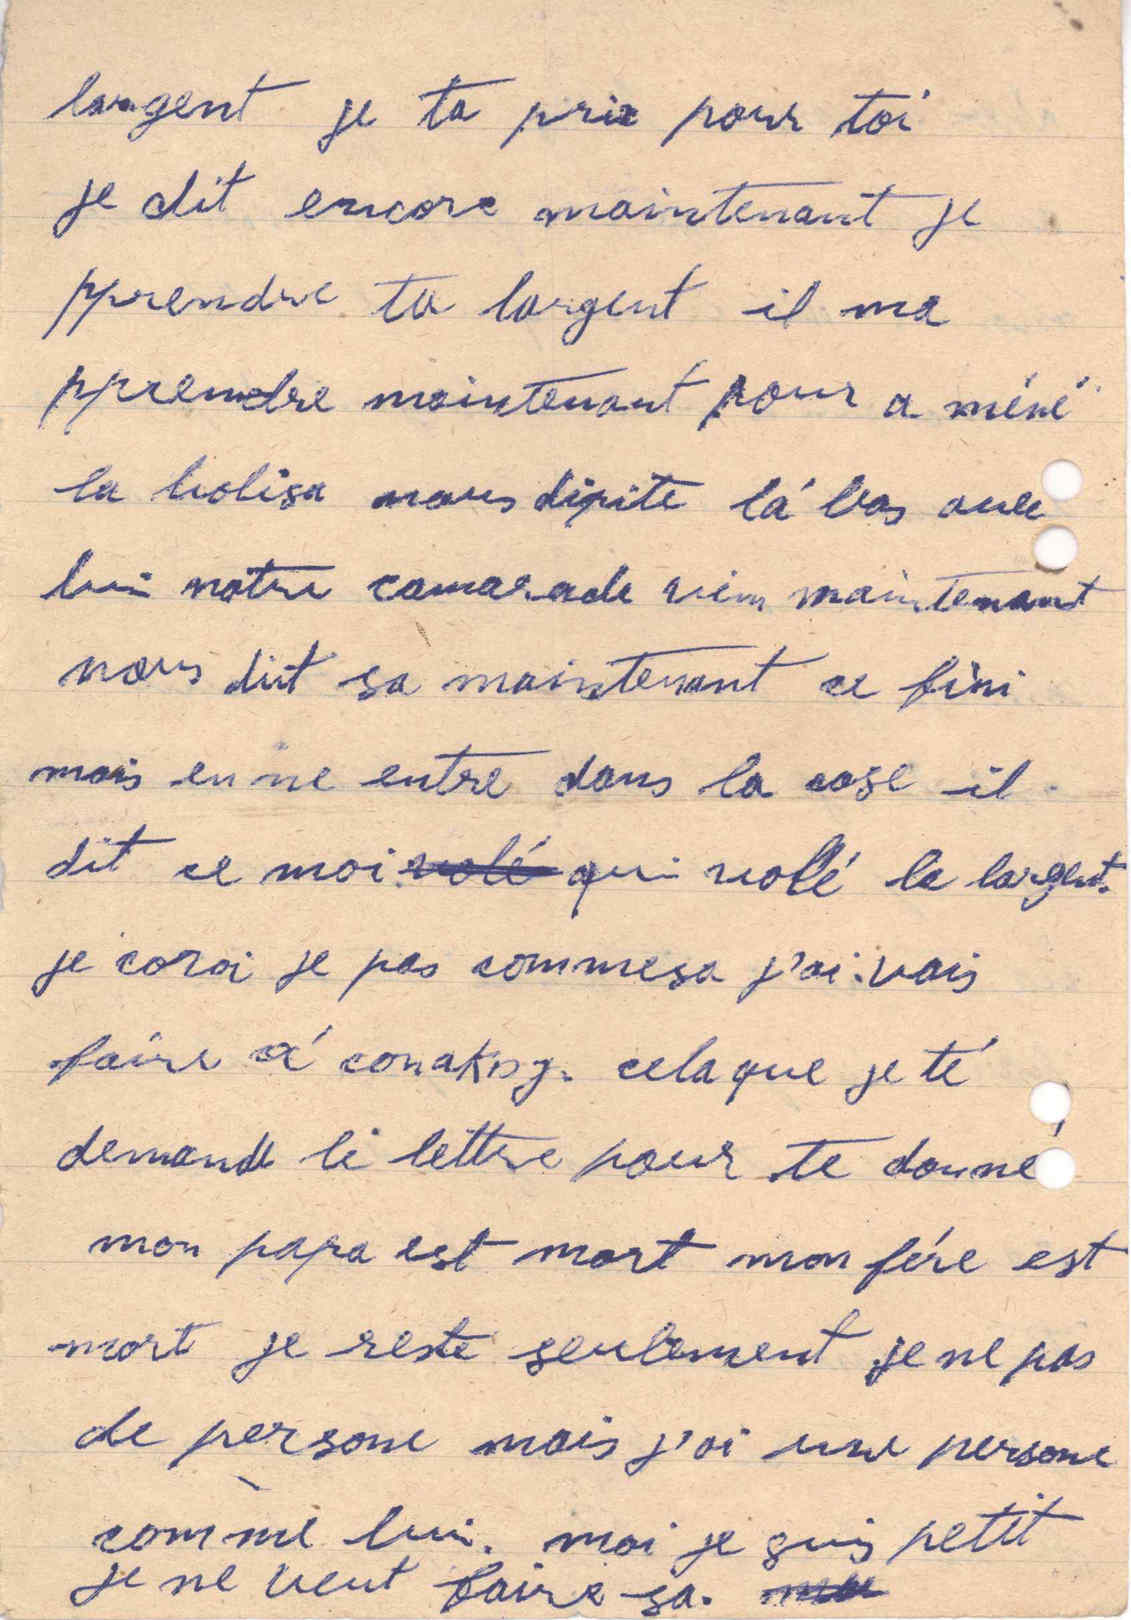 largent je ta prie pour toi
je dit encore maintenant je
pprendre ta largent il ma
pprendre maintenant pour a méné
la nous dipite là bas avec
lui notre camarade vien maintenant
nous dit sa maintenant ce fini
mais en ne entre dans la case il
dit ce moi volé qui volé le largent.
je coroi je pas commesa j'ai vais
faire à conakry. celaque je té
demande li lettre pour te donné
mon papa est mort mon fére est
mort je reste seulement je ne pas
de persone mais j'ai une persone
comme lui. moi je suis petit
je ne veut faire sa.